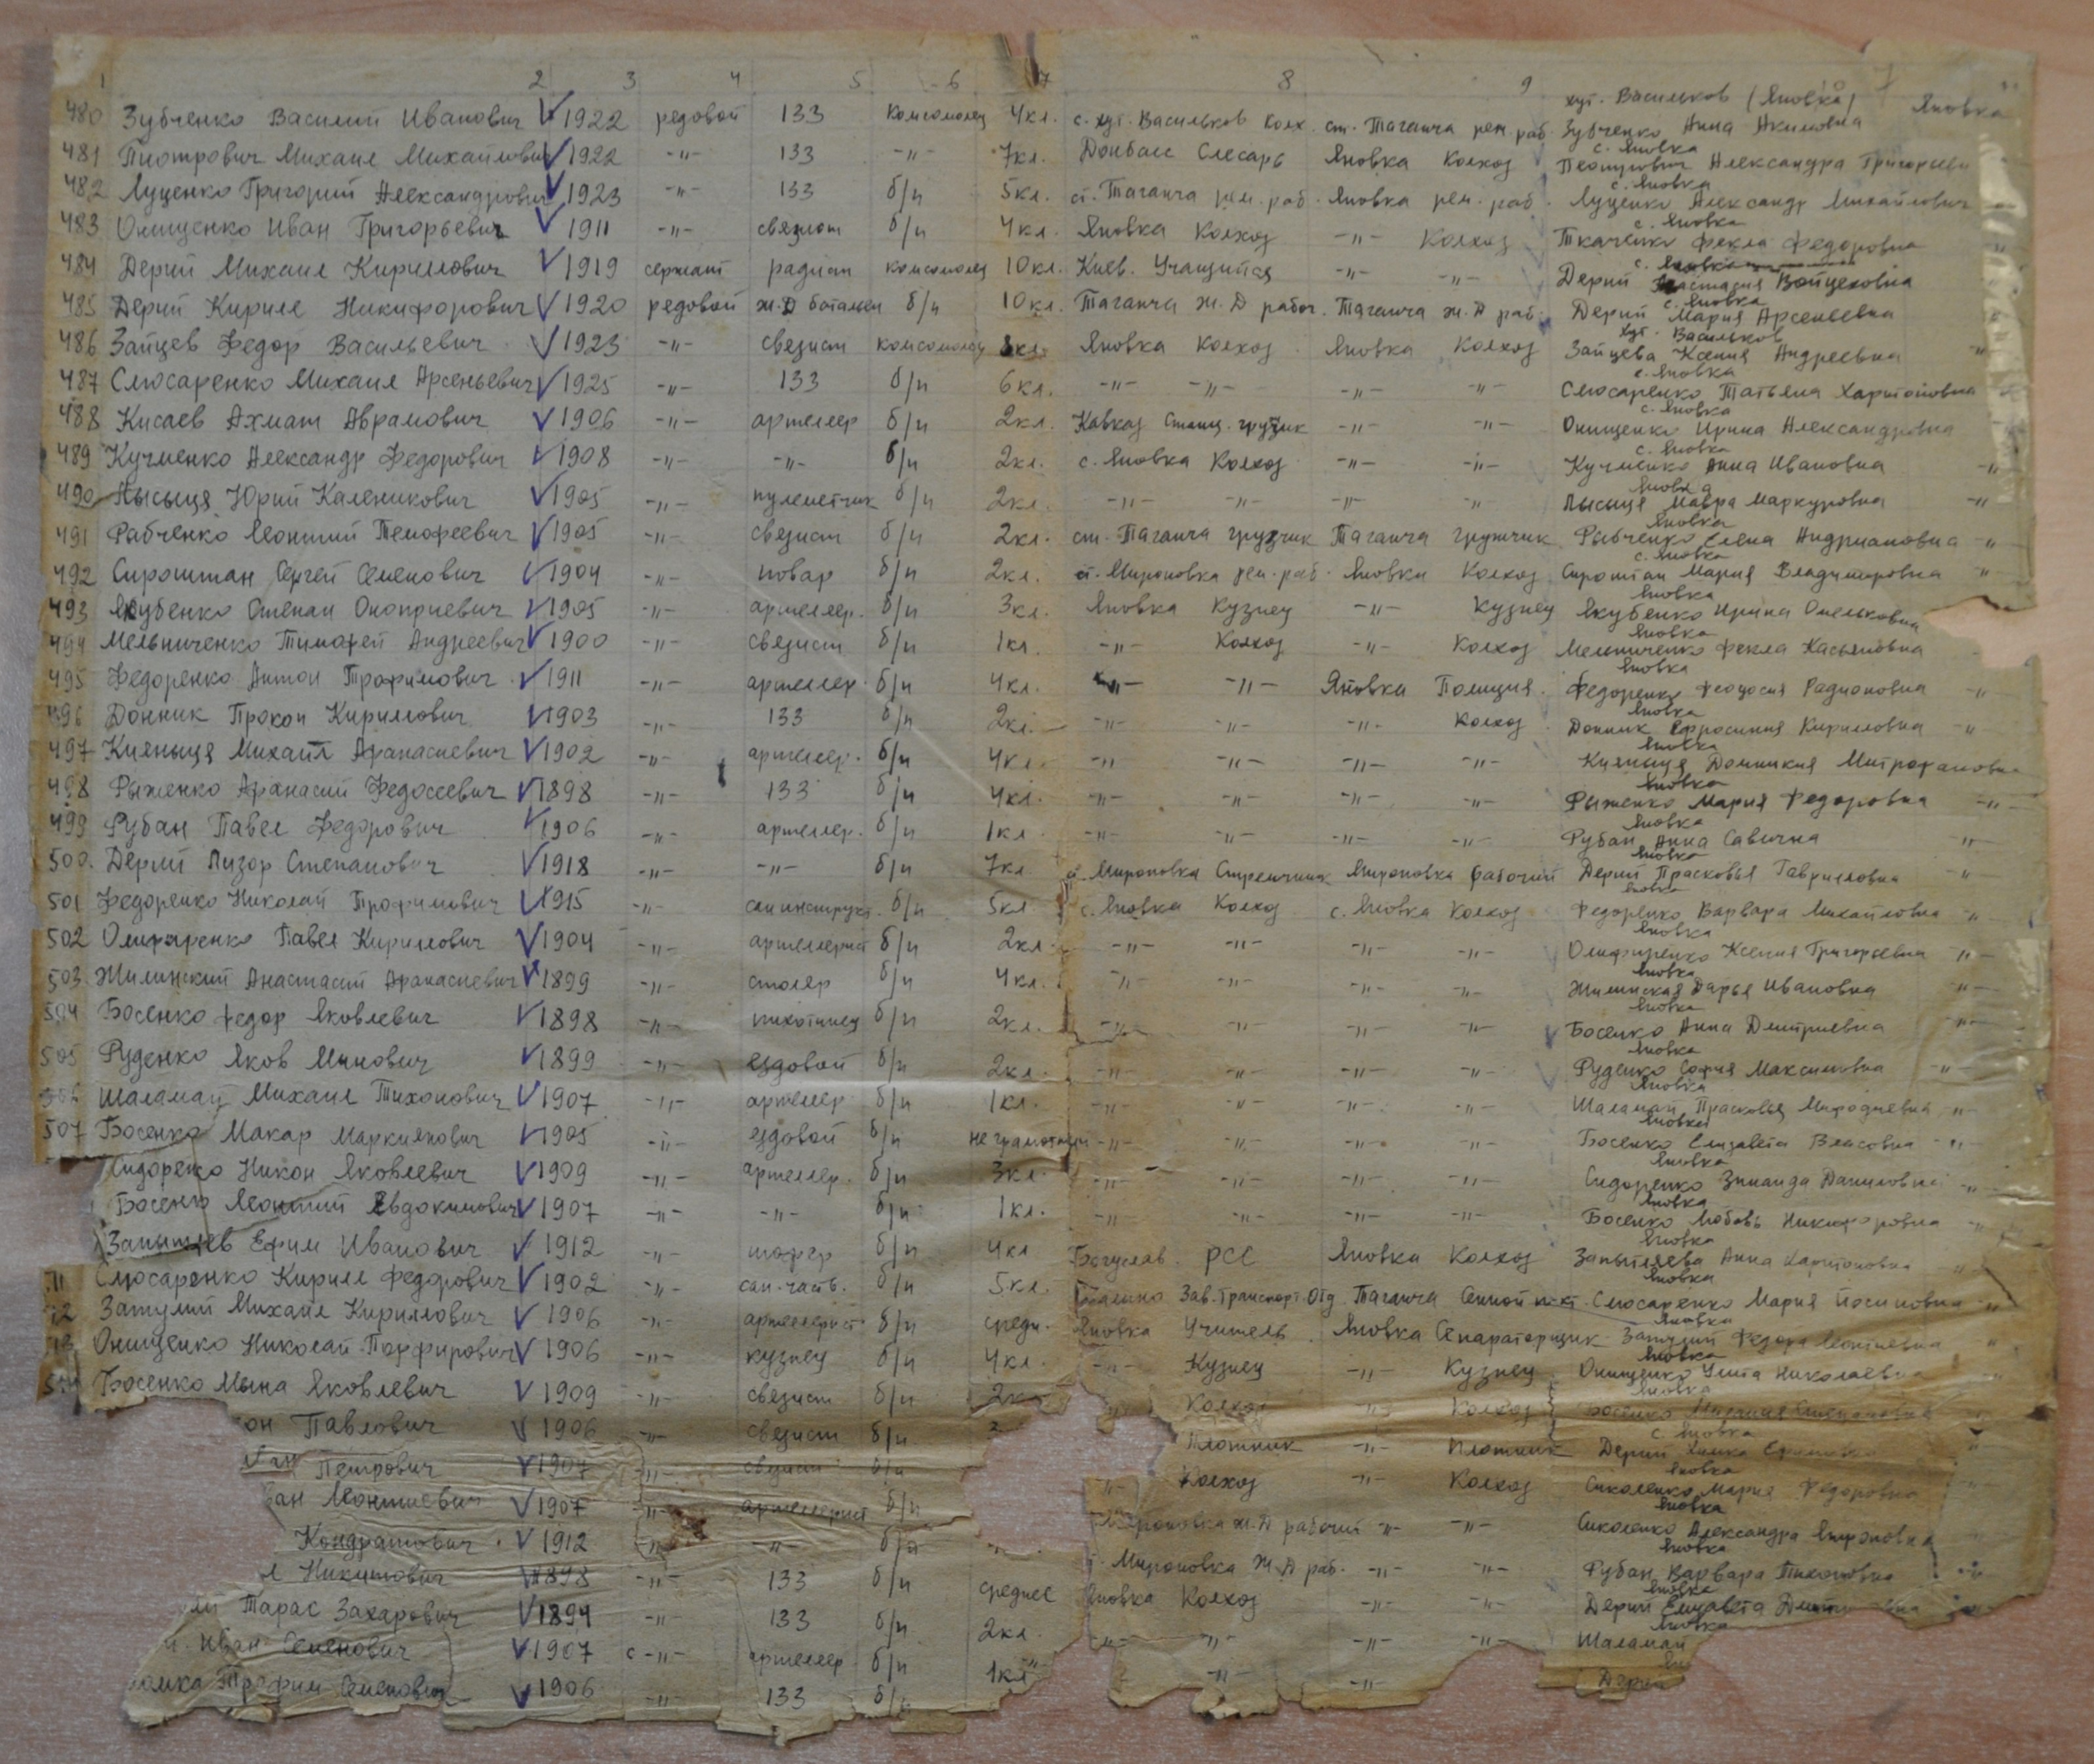 1 2 3 4 5 6 7 8 9
хут. Васильков (Яновка) Яновка
480 Зубченко Василий Иванович V 1922 редовой 133 Комсомолец 4кл. с. хут. Васильков Колх. ст. Таганча рем. раб. Зубченко Анна Акимовна
с. Яновка
481 Пиотрович Михаил Михайлович V 1922 -"- 133 -"- 7кл. Донбасс Слесарь Яновка Колхоз Пеотрович Александра Григорьевн
с. Яновка
482 Луценко Григорий Александрович V 1923 -"- 133 б/п 5кл. ст. Таганча рем. раб. Яновка рем. раб. Луценко Александр Михайлович
с. Яновка
483 Онищенко Иван Григорьевич V 1911 -"- связист б/п 4кл. Яновка Колхоз -"- Колхоз Ткаченко Фекла Федоровна
с. Яновка
484 Дерий Михаил Кириллович V 1919 сержант радист комсомолец 10кл. Киев. Учащийся -"- -"- Дерий Войцеховна
с. Яновка
485 Дерий Кирилл Никифорович V 1920 редовой ж.д батальон б/п 10кл. Таганча ж.Д рабоч. Таганча ж.Д раб. Дерий Мария Арсеньевна
хут. Васильков
486 Зайцев Федор Васильевич V 1923 -"- свезист комсомолец 8кл. Яновка Колхоз Яновка Колхоз Зайцева Ксения Андреевна -"-
с. Яновка
487 Слюсаренко Михаил Арсеньевич V 1925 -"- 133 б/п 6кл. -"- -"- -"- -"- Слюсаренко Татьяна Харитоновна
с. Яновка
488 Кисаев Ахмат Аврамович V 1906 -"- артеллер б/п 2кл. Кавказ Станц. грузчик -"- -"- Онищенко Ирина Александровна
с. Яновка
489 Кучменко Александр Федорович V 1908 -"- -"- б/п 2кл. с. Яновка Колхоз -"- -"- Кучменко Анна Ивановна -"-
Яновка
490 Лысыця Юрий Каленикович V 1905 -"- пулеметчик б/п 2кл. -"- -"- -"- -"- Лысыця Мавра Маркуровна -"-
Яновка
491 Рабченко Леонтий Темофеевич V 1905 -"- свезист б/п 2кл. ст. Таганча грузчик Таганча грузчик Рыбченко Елена Андриановна -"-
с. Яновка
492 Сироштан Сергей Семенович V 1904 -"- повар б/п 2кл. ст. Мироновка рем. раб. Яновка Колхоз Сироштан Мария Владимировна -"-
Яновка
493 Якубенко Степан Оноприевич V 1905 -"- артеллер. б/п 3кл. Яновка Кузнец -"- Кузнец Якубенко Ирина Омельковна
Яновка
494 Мельниченко Тимофей Андреевич V 1900 -"- свезист б/п 1кл. -"- Колхоз -"- Колхоз Мельниченко Фекла Касьяновна
Яновка
495 Федоренко Антон Трофимович V 1911 -"- артеллер. б/п 4кл. -"- -"- Яновка Полиция. Федоренко Феодосия Радионовна -"-
Яновка
496 Донник Прокоп Кириллович V 1903 -"- 133 б/п 2кл. -"- -"- -"- Колхоз Донник Ефросиния Кирилловна -"-
Яновка
497 Кияныця Михаил Афанасиевич V 1902 -"- артеллер. б/п 4кл. -"- -"- -"- -"- Кияныця Домникия Митрофановна
Яновка
498 Рыженко Афанасий Федосеевич V 1898 -"- 133 б/п 4кл. -"- -"- -"- -"- Рыженко Мария Федоровна -"-
Яновка
499 Рубан Павел Федорович V 1906 -"- артеллер. б/п 1кл. -"- -"- -"- -"- Рубан Анна Савична -"-
Яновка
500. Дерий Лизор Степанович V 1918 -"- -"- б/п 7кл ст. Мироновка Стрелочник Мироновка рабочий Дерий Прасковья Гавриловна -"-
Яновка
501 Федоренко Николай Трофимович V 1915 -"- сан инструкт. б/п 5кл с. Яновка Колхоз с. Яновка Колхоз Федоренко Варвара Михайловна -"-
Яновка
502 Олифиренко Павел Кириллович V 1904 -"- артеллерист б/п 2кл. -"- -"- -"- -"- Олифиренко Ксения Григорьевна -"-
Яновка
503 Жилинский Анастасий Афанасиевич V 1899 -"- столер б/п 4кл. -"- -"- -"- -"- Жилинская Дарья Ивановна -"-
Яновка
504 Босенко Федор Яковлевич V 1898 -"- пихотинец б/п 2кл. -"- -"- -"- -"- Босенко Анна Дмитриевна -"-
Яновка
505 Руденко Яков Минович V 1899 -"- ездовой б/п 2кл. -"- -"- -"- -"- Руденко София Максимовна -"-
Яновка
506 Шаламай Михаил Тихонович V 1907 -"- артеллер б/п 1кл. -"- -"- -"- -"- Шаламай Прасковья Мифодиевна -"-
Яновка
507 Босенко Макар Маркиянович V 1905 -"- ездовой б/п не грамотный -"- -"- -"- -"- Босенко Елизавета Власовна -"-
Яновка
Сидоренко Никон Яковлевич V 1909 -"- артеллер. б/п 3кл. -"- -"- -"- -"- Сидоренко Зинаида Даниловна -"-
Яновка
Босенко Леонтий Евдокимович V 1907 -"- -"- б/п 1кл. -"- -"- -"- -"- Босенко Любовь Никифоровна -"-
Яновка
Запытяев Ефим Иванович V 1912 -"- шофер б/п 4кл Богуслав. РСС Яновка Колхоз Запытяева Анна Харитоновна -"-
Яновка
11 Слюсаренко Кирилл Федорович V 1902 -"- сан. часть. б/п 5кл. Зав. Транспорт. Отд. Таганча Сенной Слюсаренко Мария Иосиповна -"-
Яновка
12 Затулий Михаил Кириллович V 1906 -"- артеллерист б/п средн. Яновка Учитель. Яновка Сепараторщик Затулий Федора Леонтиевна "
Яновка
13 Онищенко Николай Порфирович V 1906 -"- кузнец б/п 4кл. -"- Кузнец -"- Кузнец Онищенко Улита Николаевна "
Яновка
514 Босенко Мына Яковлевич V 1909 -"- свезист б/п 2кл " Колхоз " Колхоз Босенко
с. Яновка
он Павлович V 1906 -"- свезист б/п Плотник -"- Плотник Дерий Химка "
Яновка
Петрович V 1907 -"- свезист б/п " Колхоз -"- Колхоз Сиколенко Мария Федоровна
Яновка
ван Леонтиевич V 1907 -"- артеллерист б/п роновка ж.Д рабочий -"- -"- Сиколенко Александра
Яновка
Кондратович V 1912 -"- -"- б/п -"- Мироновка Ж.Д раб. -"- -"- Рубан Варвара Тихоновна -"-
Яновка
л Никитович V 1898 -"- 133 б/п среднее Яновка Колхоз -"- -"- Дерий Елизавета -"-
Яновка
ий Тарас Захарович V 1894 -"- 133 б/п 2кл. -"- -"- -"- -"- Шаламай
й. Иван Семенович V 1907 с -"- артеллер б/п 1кл -"- -"- -"- Дери
омка Трофим Семенович V 1906 -"- 133 б/п -"-